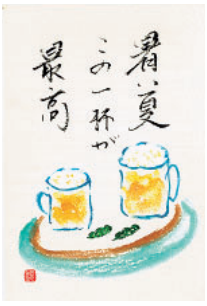 暑い夏
この一杯が
最高